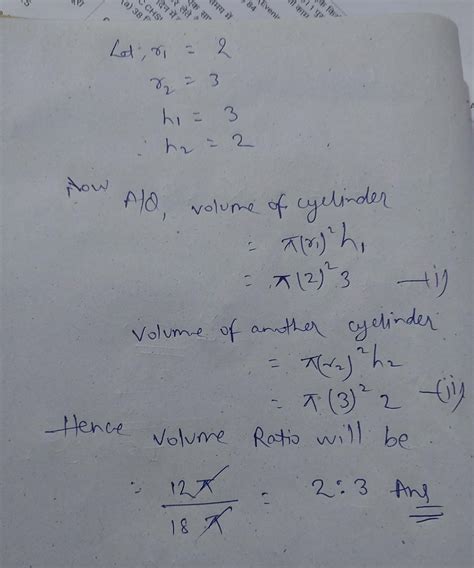 Let, r₁ = 2
r₂ = 3
h₁ = 3
∴ h₂ = 2
Now A/Q, volume of cyclinder
= π(r₁)² h₁
= π(2)² 3 —(i)
Volume of another cyclinder
= π(r₂)² h₂
= π(3)² 2 —(ii)
Hence Volume Ratio will be
∴ 12π/18π = 2:3 Ans